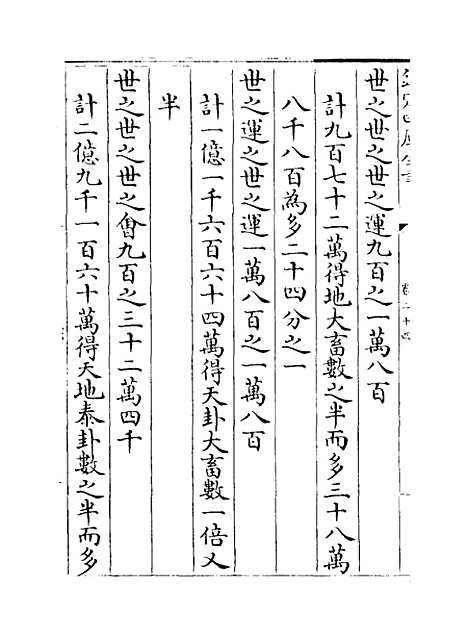 欽定四庫全書
卷二十四
世之世之世之運九百之一萬八百
計九百七十二萬得地大畜數之半而多三十八萬
八千八百為多二十四分之一
世之運之世之運一萬八百之一萬八百
計一億一千六百六十四萬得天卦大畜數一倍又
半
世之世之世之會九百之三十二萬四千
計二億九千一百六十萬得天地泰卦數之半而多